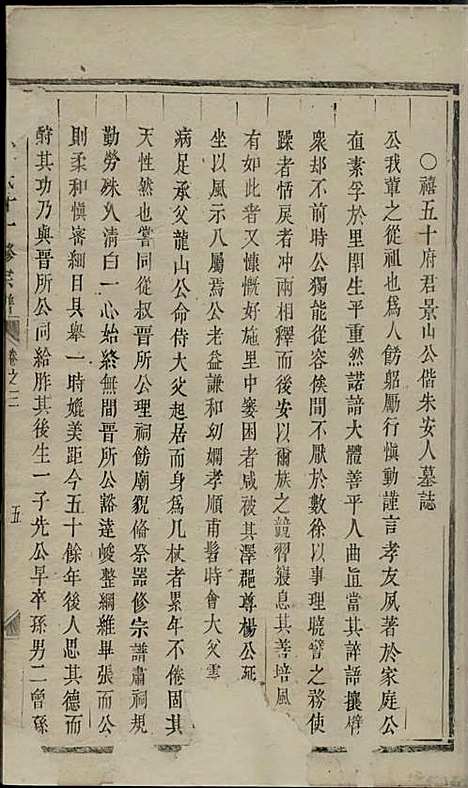 ○禧五十府君景山公偕朱安人墓誌
公我輩之從祖也爲人飭躬勵行慎動謹言孝友夙著於家庭公
直素孚於里閈生平重然諾諳大體善平人曲直當其誶語攘臂
衆却不前時公獨能從容俟間不厭於數徐以事理曉譬之務使
躁者恬戾者冲兩相釋而後安以爾族之競習寢息其善培風
有如此者又慷慨好施里中窶困者咸被其澤郡尊楊公延
坐以風示八屬焉公老益謙和幼嫻孝順甫髫時會大父雲
病足承父龍山公命侍大父起居而身爲几杖者累年不倦固其
天性然也嘗同從叔晉所公理祠飭廟貌脩祭器修宗譜肅祠規
勤勞殊久清白一心始終無間晉所公豁達峻整綱維畢張而公
則柔和慎審細目具舉一時媲美距今五十餘年後人思其德而
酧其功乃與晉所公同給胙其後生一子先公早卒孫男二曾孫
氏十一修宗譜
卷之二
五